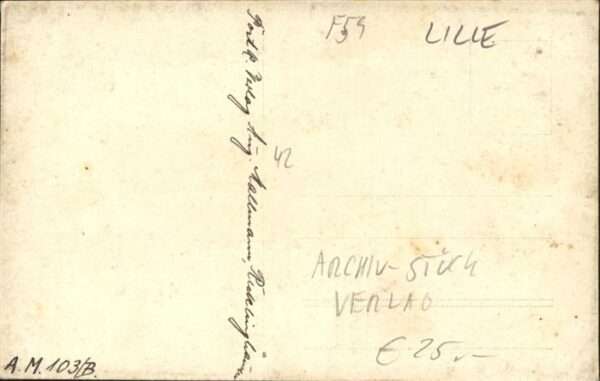 F54
LILLE
Verlag Aug. Kallmann, Recklinghausen
42
ARCHIV-STÜCK
VERLAG
€ 25,-
A.M. 103/B.